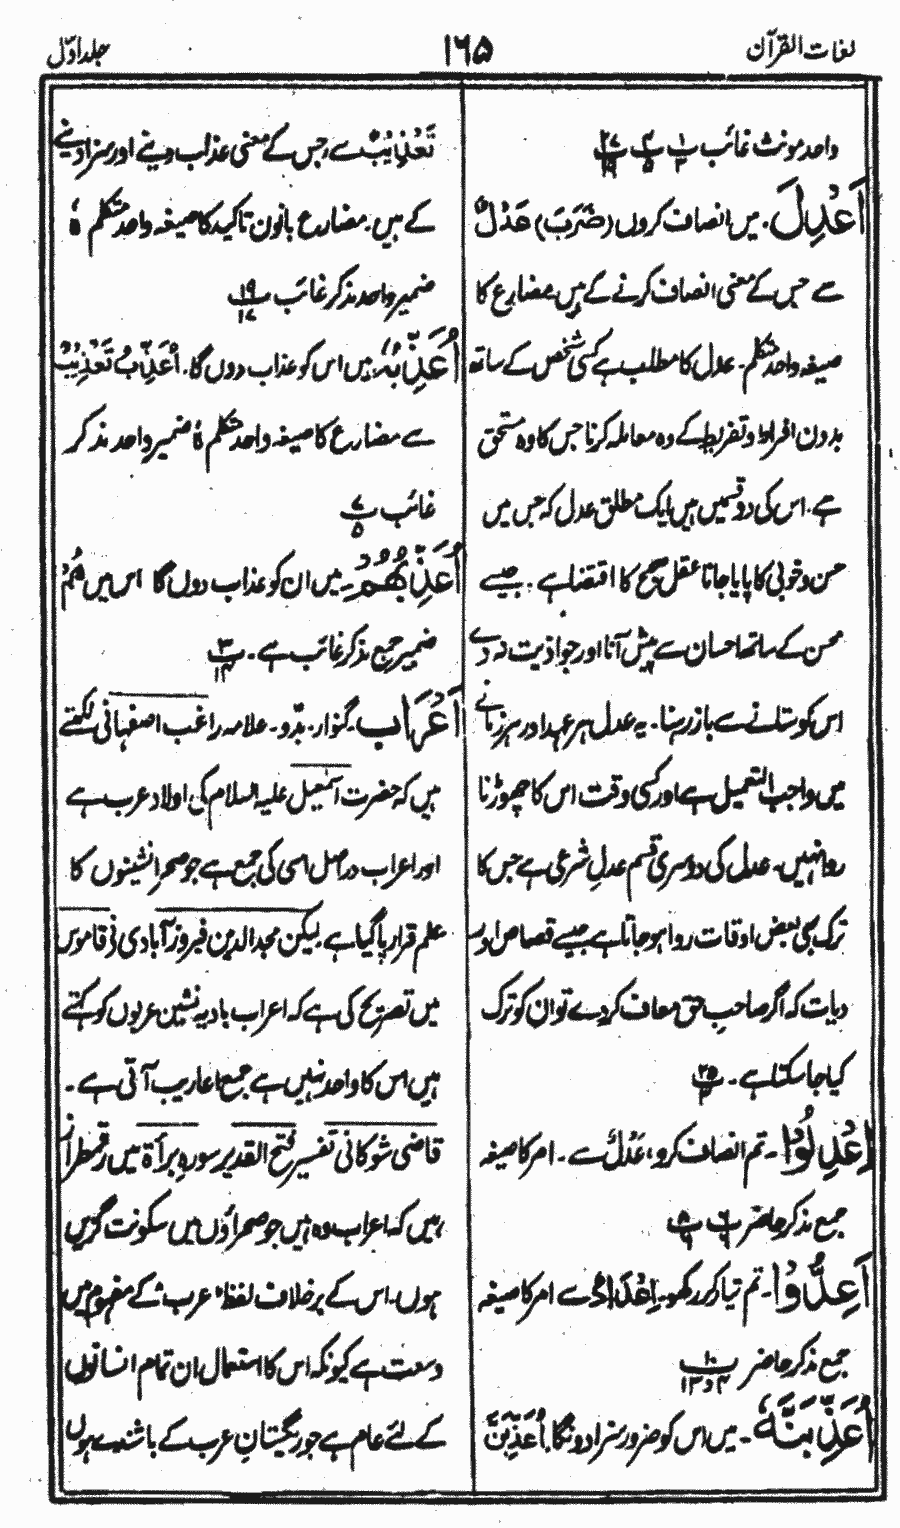 لغات القرآن
۱۶۵
جلد اوّل
واحد مونث غائب
أَعْدِلَ۔ میں انصاف کروں (ضَرَبَ) عَدْلٌ
سے جس کے معنی انصاف کرنے کے ہیں مضارع کا
صیغہ واحد متکلم۔ عدل کا مطلب ہے کسی شخص کے ساتھ
بدون افراط و تفریط کے وہ معاملہ کرنا جس کا وہ مستحق
ہے۔ اس کی دو قسمیں ہیں ایک مطلق عدل کہ جس میں
حسن و خوبی کا پایا جانا عقل صحیح کا اقتضا ہے۔ جیسے
محسن کے ساتھ احسان سے پیش آنا اور جو اذیت نہ دے
اس کو ستانے سے باز رہنا۔ یہ عدل ہر عہد اور ہر زمانے
میں واجب التعمیل ہے اور کسی وقت اس کا چھوڑنا
روا نہیں۔ عدل کی دوسری قسم عدلِ شرعی ہے جس کا
ترک بھی بعض اوقات روا ہو جاتا ہے جیسے قصاص اور
دیات کہ اگر صاحبِ حق معاف کر دے تو ان کو ترک
کیا جا سکتا ہے۔ ۲۵
اِعْدِلُوْا۔ تم انصاف کرو، عَدْلٌ سے۔ امر کا صیغہ
جمع مذکر حاضر
أَعِدُّوْا۔ تم تیار رکھو۔ اِعْدَادٌ سے امر کا صیغہ
جمع مذکر حاضر ۱۰
أُعَذِّبَنَّهٗ۔ میں اس کو ضرور سزا دونگا، أُعَذِّبَنَّ
تَعْذِيْبٌ سے، جس کے معنی عذاب دینے اور سزا دینے
کے ہیں۔ مضارع بانون تاکید کا صیغہ واحد متکلم ہٗ
ضمیر واحد مذکر غائب ۱۹
أُعَذِّبُهٗ، میں اس کو عذاب دوں گا۔ أُعَذِّبُ تَعْذِيْبٌ
سے مضارع کا صیغہ واحد متکلم ہٗ ضمیر واحد مذکر
غائب ۷
أُعَذِّبُهُمْ۔ میں ان کو عذاب دوں گا اس میں هُمْ
ضمیر جمع مذکر غائب ہے۔ ۳
أَعْرَاب۔ گنوار، بدّو۔ علامہ راغب اصفہانی لکھتے
ہیں کہ حضرت اسمٰعیل علیہ السلام کی اولاد عرب ہے
اور اعراب دراصل اسی کی جمع ہے جو صحرا نشینوں کا
علم قرار پا گیا ہے، لیکن مجد الدین فیروز آبادی نے قاموس
میں تصریح کی ہے کہ اعراب بادیہ نشین عربوں کو کہتے
ہیں اس کا واحد نہیں ہے جمع اعاریب آتی ہے۔
قاضی شوکانی تفسیر فتح القدیر سورہ برأۃ میں رقمطراز
ہیں کہ اعراب وہ ہیں جو صحراؤں میں سکونت گزیں
ہوں۔ اس کے برخلاف لفظ عرب کے مفہوم میں
وسعت ہے کیونکہ اس کا استعمال ان تمام انسانوں
کے لئے عام ہے جو ریگستانِ عرب کے باشندے ہوں